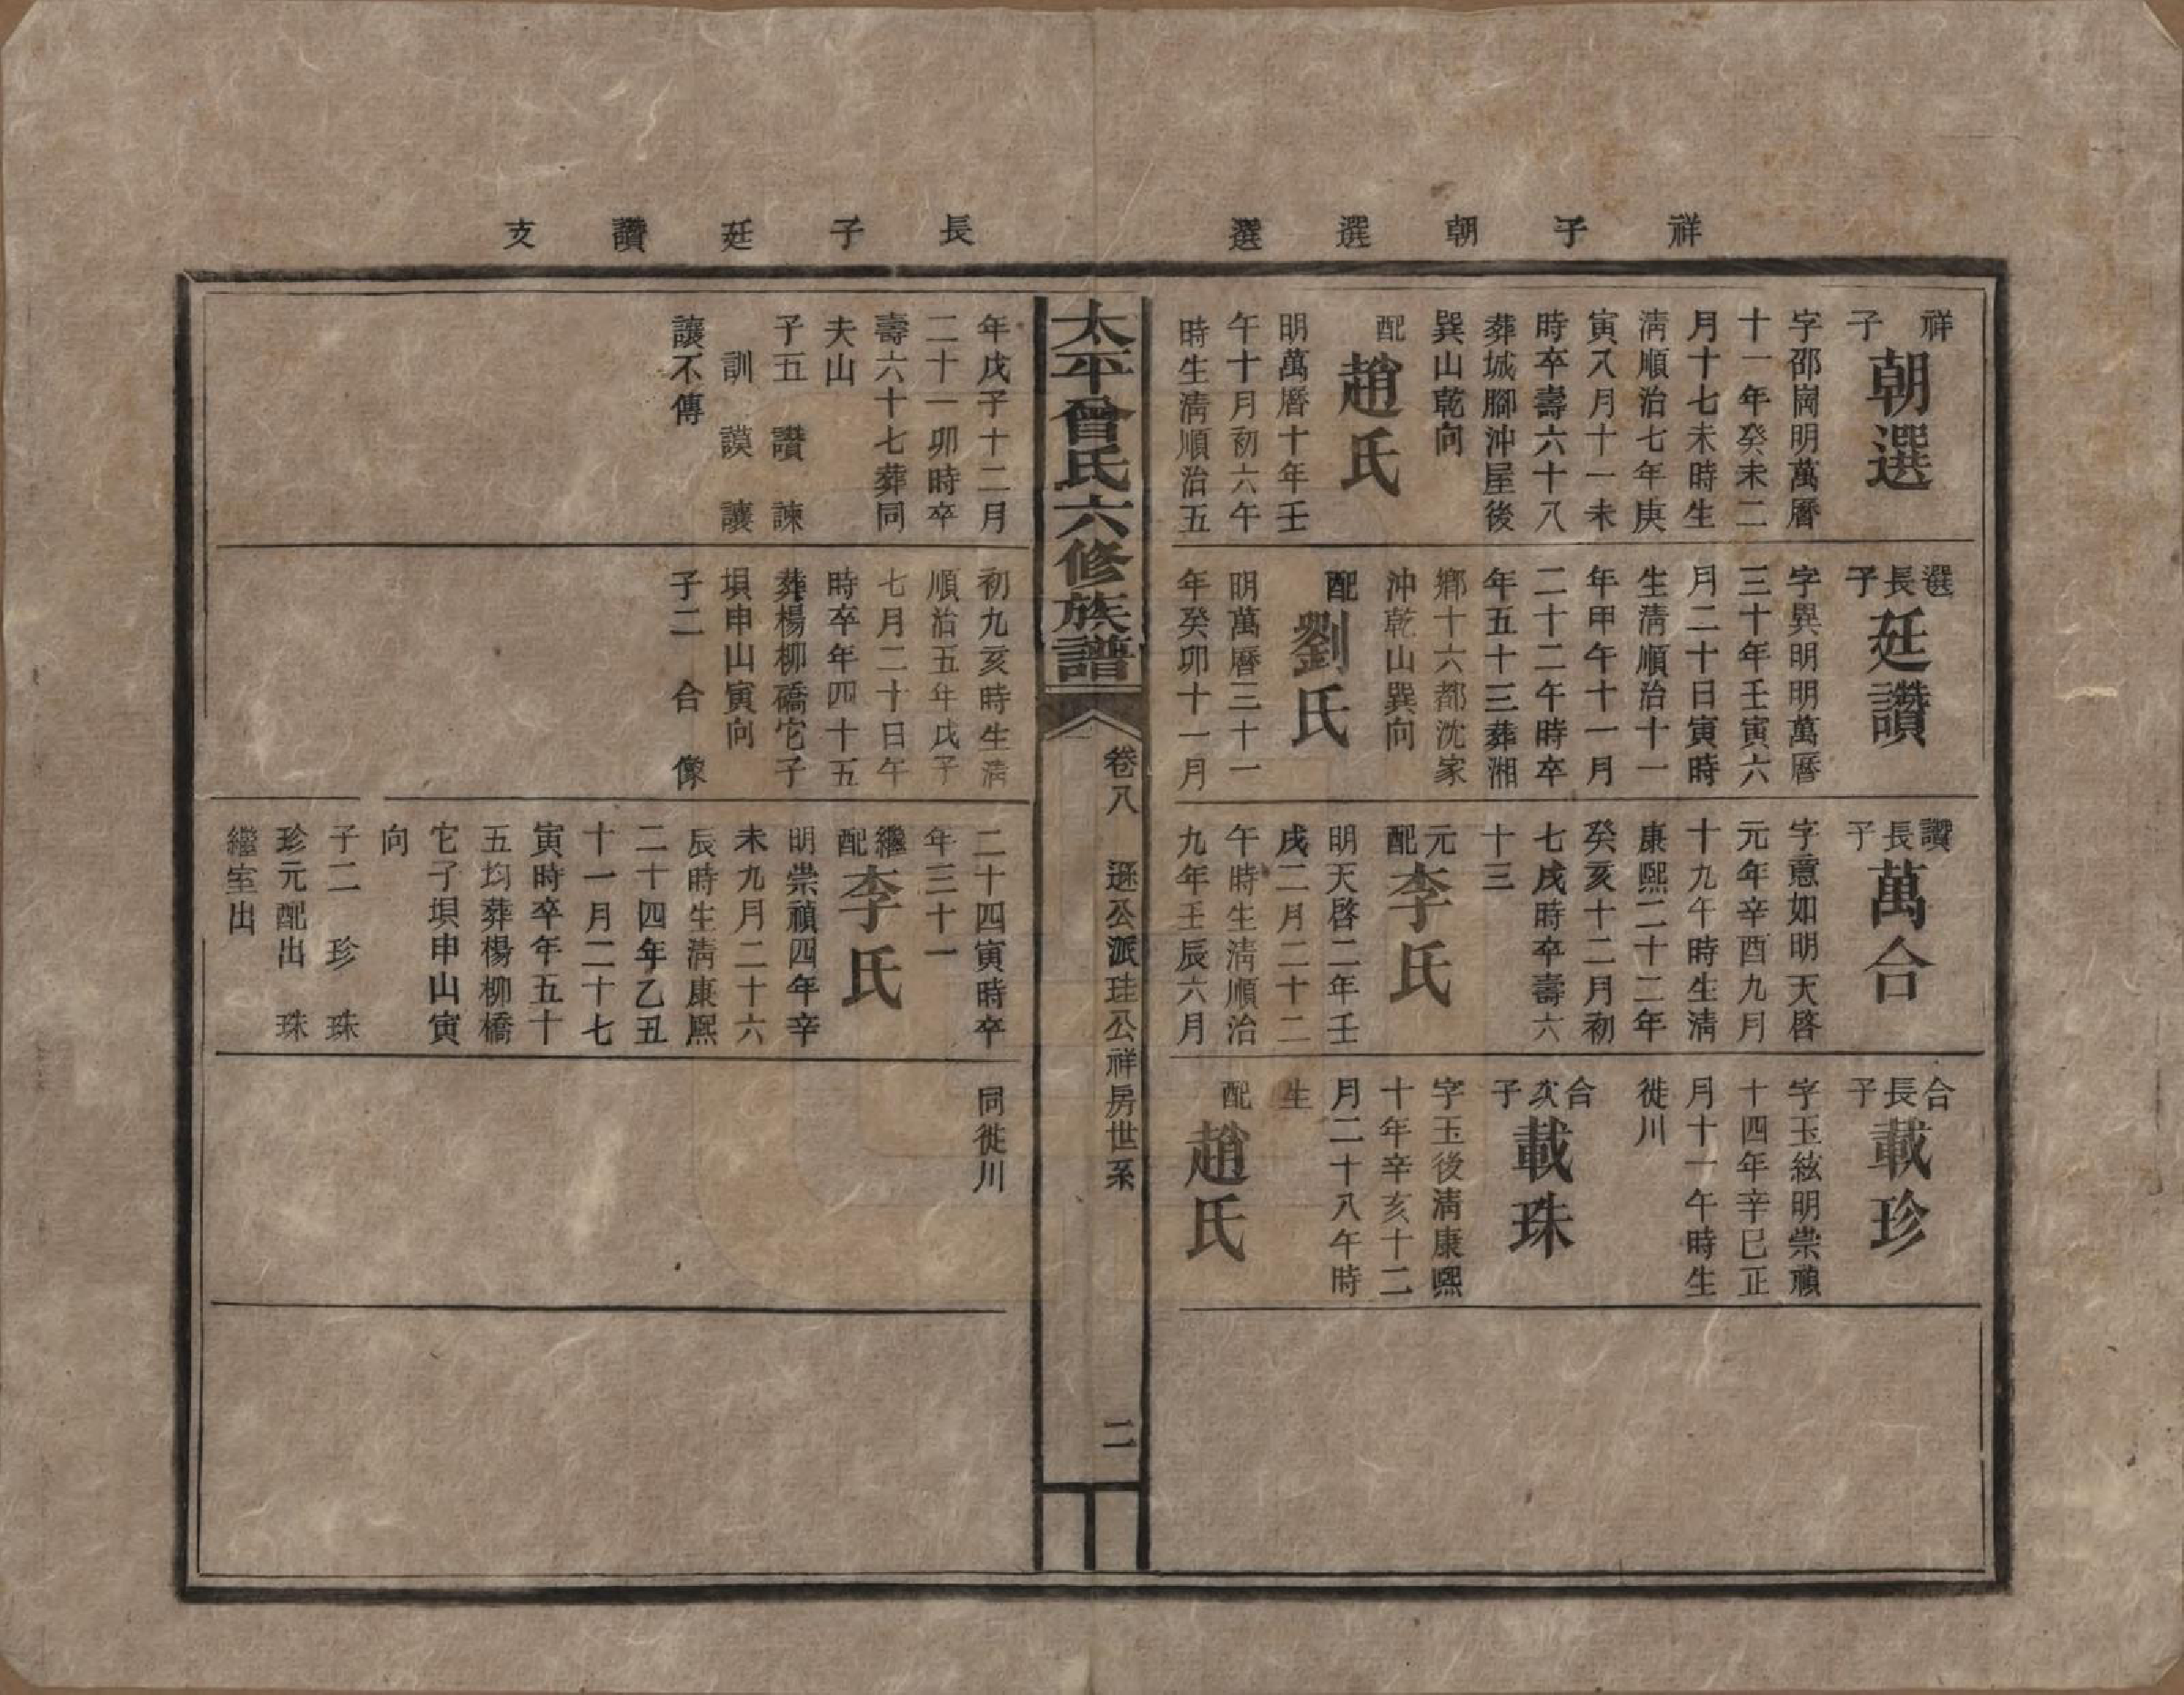 祥子朝選選
長子廷讚支
祥子
朝選
字邵崗明萬曆
十一年癸未二
月十七未時生
淸順治七年庚
寅八月十一未
時卒壽六十八
葬城腳沖屋後
巽山乾向
配
趙氏
明萬曆十年壬
午十月初六午
時生淸順治五
年戊子十二月
二十一卯時卒
壽六十七葬同
夫山
子五 讚 諫
訓 謨 讓
讓不傳
選長子
廷讚
字異明明萬曆
三十年壬寅六
月二十日寅時
生淸順治十一
年甲午十一月
二十二午時卒
年五十三葬湘
鄉十六都沈家
沖乾山巽向
配
劉氏
明萬曆三十一
年癸卯十一月
初九亥時生淸
順治五年戊子
七月二十日午
時卒年四十五
葬楊柳礄它子
垻申山寅向
子二 合 像
讚長子
萬合
字意如明天啓
元年辛酉九月
十九午時生淸
康熙二十二年
癸亥十二月初
七戌時卒壽六
十三
元配
李氏
明天啓二年壬
戌二月二十二
午時生淸順治
九年壬辰六月
二十四寅時卒
年三十一
繼配
李氏
明崇禎四年辛
未九月二十六
辰時生淸康熙
二十四年乙丑
十一月二十七
寅時卒年五十
五均葬楊柳橋
它子垻申山寅
向
子二 珍 珠
珍元配出 珠
繼室出
合長子
載珍
字玉絃明崇禎
十四年辛巳正
月十一午時生
徙川
合次子
載珠
字玉後淸康熙
十年辛亥十二
月二十八午時
生
配
趙氏
同徙川
太平曾氏六修族譜
卷八 遜公派珪公祥房世系
二